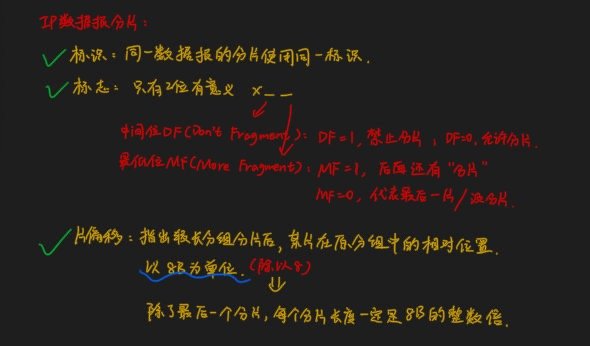 IP数据报分片：
标识：同一数据报的分片使用同一标识.
标志：只有2位有意义 x _ _
中间位DF(Don't Fragment)：DF=1，禁止分片；DF=0，允许分片.
最低位MF(More Fragment)：MF=1，后面还有"分片"
MF=0，代表最后一片/没分片.
片偏移：指出较长分组分片后，某片在原分组中的相对位置.
以8B为单位.(除以8)
⇓
除了最后一个分片，每个分片长度一定是8B的整数倍.